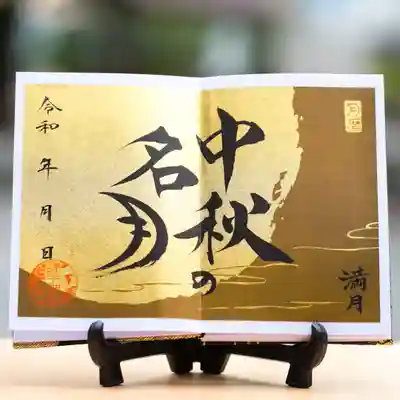 中秋の
名月
満月
令和 年 月 日